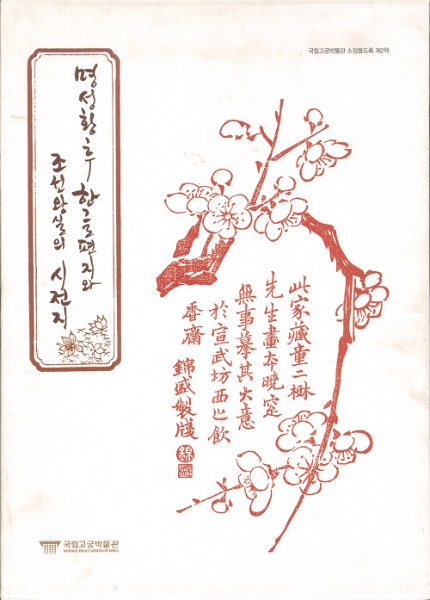 국립고궁박물관 소장품도록 제2책
명성황후 한글편지와
조선왕실의 시전지
此家藏童二樹
先生畫本曉窓
無事摹其大意
於宣武坊西之飲
齋 錦盛製牋
국립고궁박물관
NATIONAL PALACE MUSEUM OF KOREA